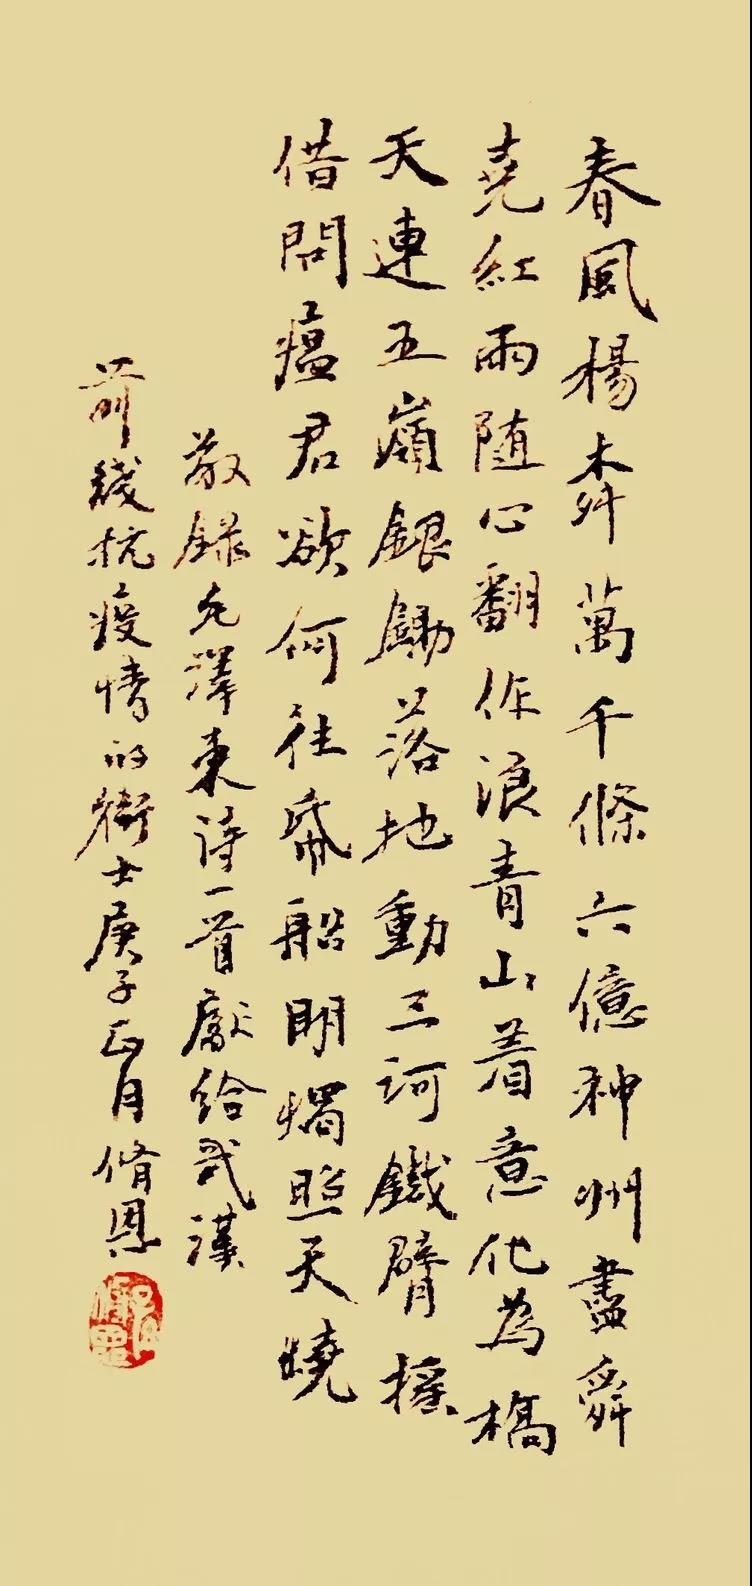 春風楊柳萬千條六億神州盡舜
堯紅雨随心翻作浪青山着意化為橋
天連五嶺銀鋤落地動三河鐵臂摇
借問瘟君欲何往帋船明燭照天燒
敬録毛澤東詩一首獻給武漢
前綫抗疫情的衛士庚子正月脩恩